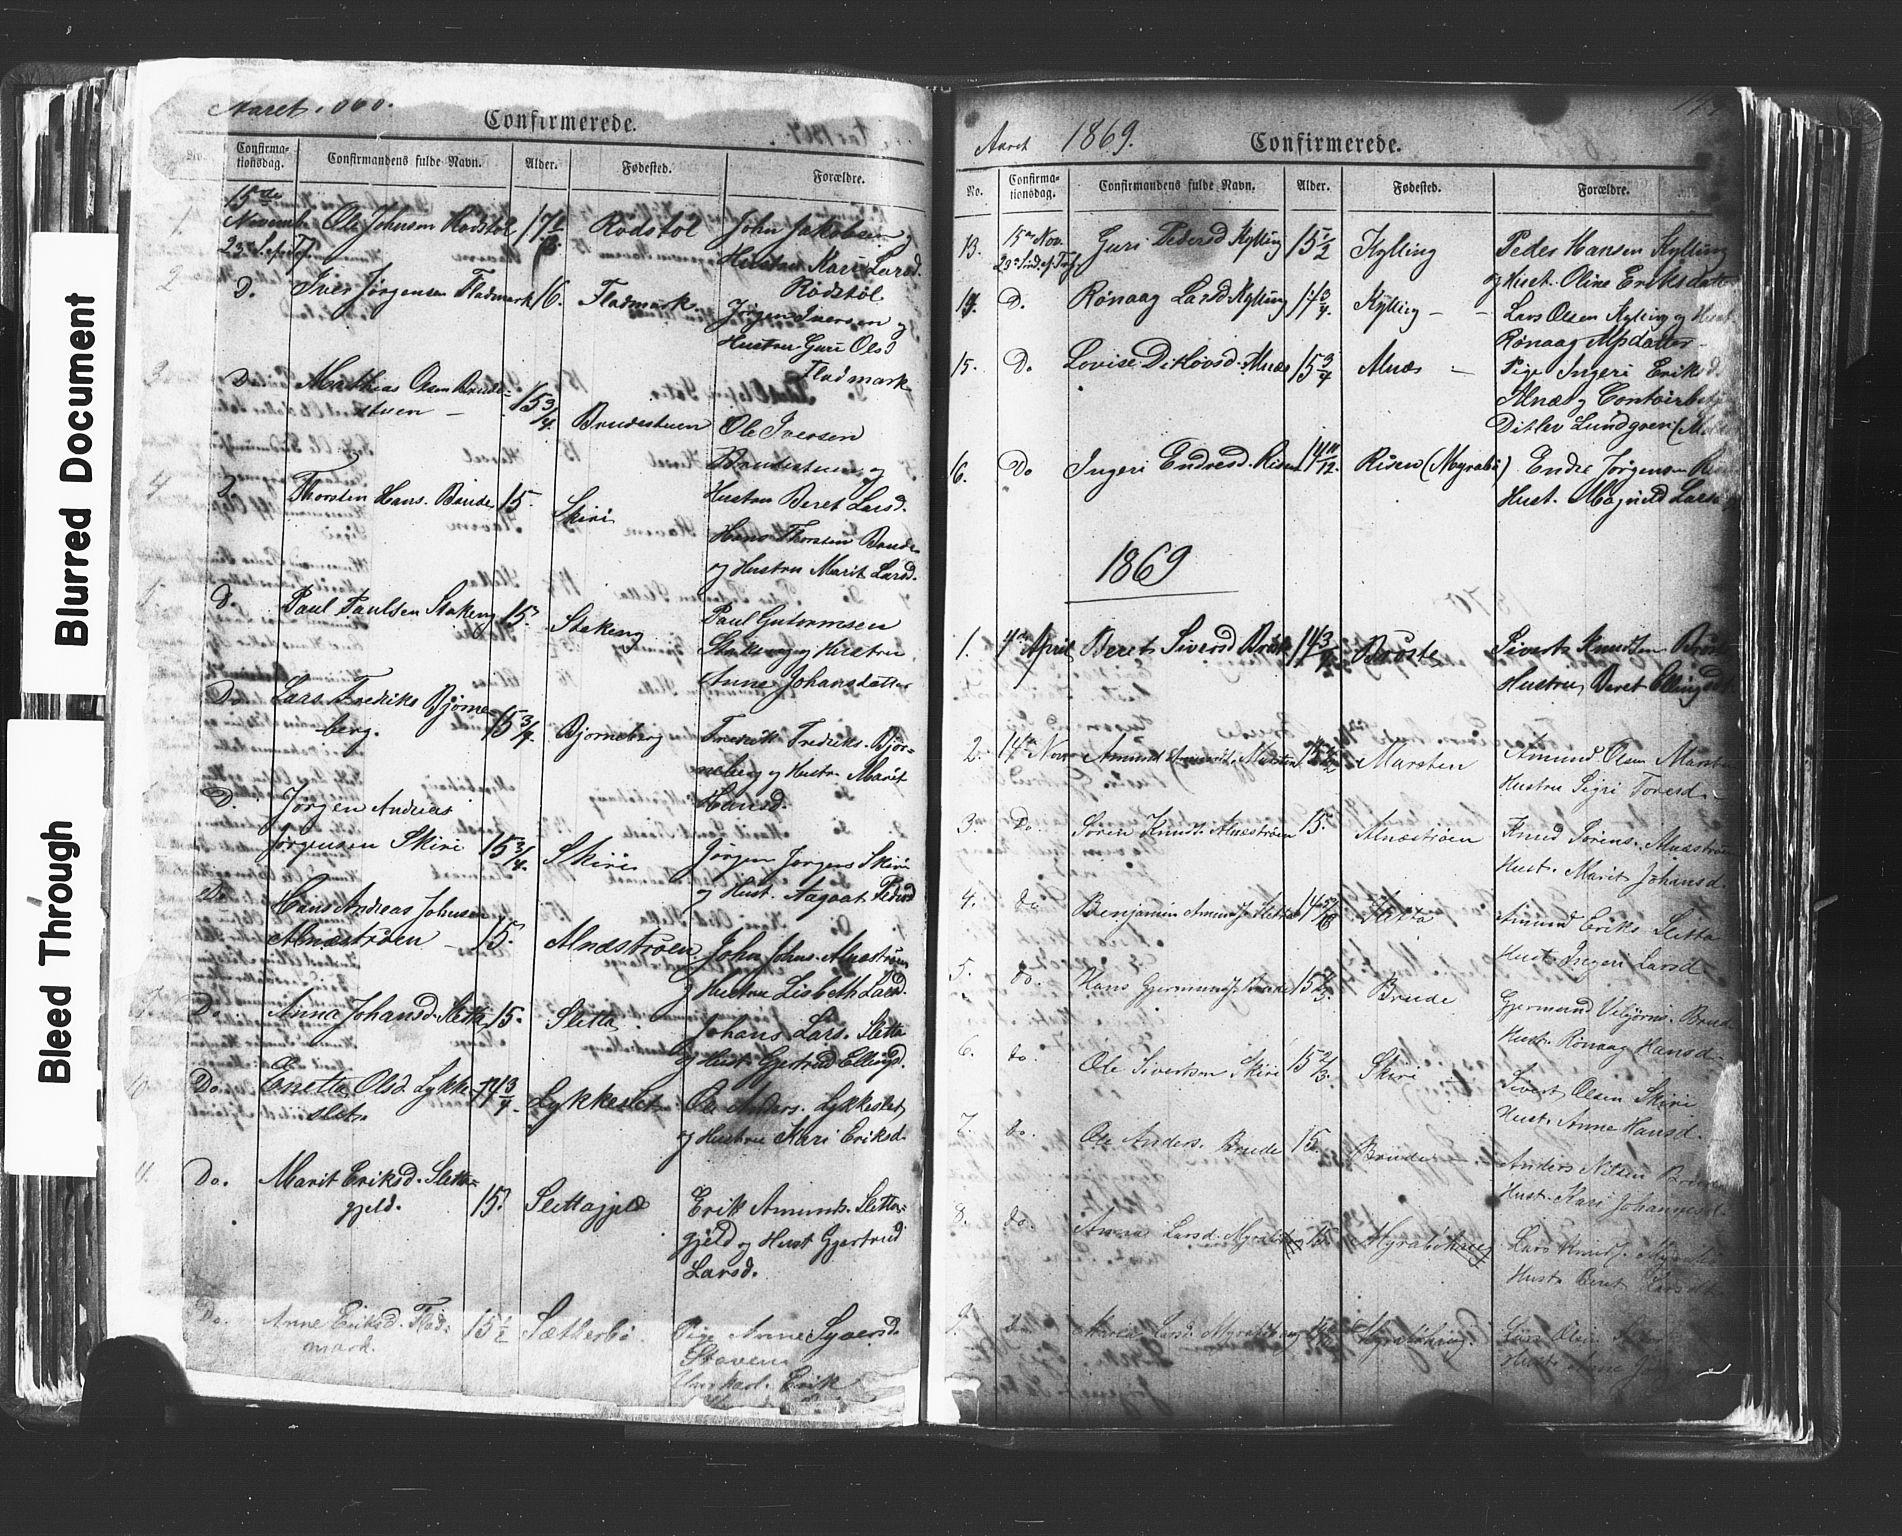 Blurred Document
Bleed Through
Aaret
Confirmerede.
Confirma-
tionsdag.
Confirmandens fulde Navn.
Alder.
Fødested.
Forældre.
1 15de
Novembr Ole Johnsen Rødstøl 17 Rødstøl John Jakobsen
Hustru Kari Larsd.
Rødstøl
2 D. Iver Jørgensen Fladmark 16. Fladmark. Jørgen Iversen og
Hustru Guri Olsd
Fladmark
3 D. Matthias Olsen Brude-
stuen 15 3/4. Brudestuen Ole Iversen
Brudestuen og
Hustru Beret Larsd.
4 Thorsten Hans. Brude 15. Skiri Hans Thorsten Brude
og Hustru Marit Larsd.
D. Paul Paulsen Stokeng 15. Stokeng Paul Guttormsen
Stokeng og Hustru
Anne Johansdatter
Do Lars Fredriks. Bjørne-
berg. 15 3/4. Bjorneberg Fredrik Fredriks. Bjør-
neberg og Hustr. Marit
Hansd.
D. Jørgen Andreas
Jørgensen Skiri 15 3/4. Skiri Jørgen Jørgens. Skiri
og Hust. Aagaat Pedersd
Do. Hans Andreas Johnsen
Alnæstrøen 15. Alnæstrøen John Johns. Alnæstrøen
og Hustru Lisbeth Larsd.
Do. Anna Johansd. Sletta 15. Sletta Johans Lars. Sletta
og Hust. Gjertrud Ellingsd.
10 Do. Enetta Olsd Lykke-
slet. 14 3/4. Lykkeslet Ole Anders. Lykkeslet
og Hustru Kari Eriksd.
11. Do. Marit Eriksd. Sletta-
gjeld. 15. Slettagjeld Erik Amunds. Sletta-
gjeld og Hust Gjertrud
Larsd.
Do. Anne Eriksd. Flad-
mark. 15 1/2 Sætherbø. Pige Anne Syversd.
Staven
Ungkarl. Erik
Aaret 1869.
Confirmerede.
No.
Confirma-
tionsdag.
Confirmandens fulde Navn.
Alder.
Fødested.
Forældre.
13. 15de Nov. Guri Pedersd Kylling 15 1/2 Kylling Peder Hansen Kylling
og Hust. Oline Eriksdatter
14. D. Rønaag Larsd Kylling 14 3/4. Kylling Lars Olsen Kylling og Hust.
Rønaag
15. Do Lovise Ditlevsd. Alnæs 15 3/4 Alnæs Pige Ingeri Eriksd.
Alnæs og
Ditlev Lundgren
16. Do Ingeri Endresd. Risen 14 10/12. Risen (Myrabø) Endre Jørgensen Risen
Hust. Magnild Larsd
1869
1. 4de April Beret Siversd Brøste 14 3/4 Brøste Sivert Knudsen Brøste
Hustru Beret Ellingsd
2. 14de Nov Amund Amunds. Marsten 15 Marsten Amund Olsen Marsten
Hustru Sigri Toresd
3. Do. Søren Knuds. Alnæstrøen 15. Alnæstrøen Knud Sørens. Alnæstrøen
Hust. Marit Johansd.
4. do Benjamin Amunds. Sletta 14 Sletta Amund Eriks. Sletta
Hust. Ingeri Larsd
5. do. Hans Gjermunds. Brude 15 Brude Gjermund Vebjørns. Brude
Hust. Rønaag Hansd.
6. do. Ole Sivertsen Skiri 15 2/3. Skiri Sivert Olsen Skiri
Hust. Anne Hansd.
7. do. Ole Anders. Brude 15. Brude Anders Nilsen
Hust. Kari Johannesd.
8. do. Anna Larsd. 15 Lars Knuds.
Hust. Beret
9. do. Larsd. Lars Olsen
Hust. Anne